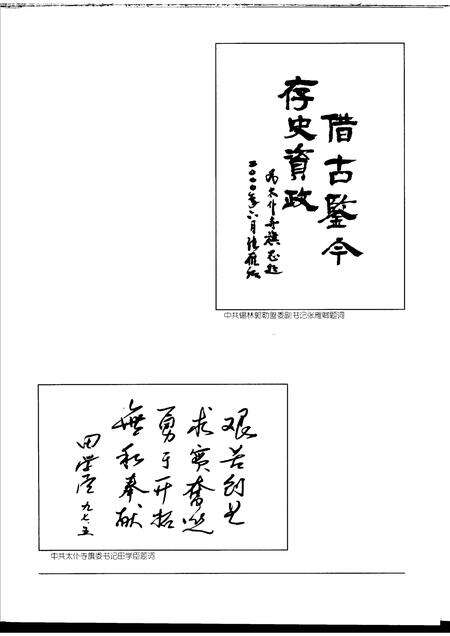 借古鉴今
存史資政
为太仆寺旗志题
二〇〇〇年六月
中共锡林郭勒盟委副书记张雁卿题词
艰苦创业
求实奮进
勇于开拓
無私奉献
田学臣 九七.五
中共太仆寺旗委书记田学臣题词